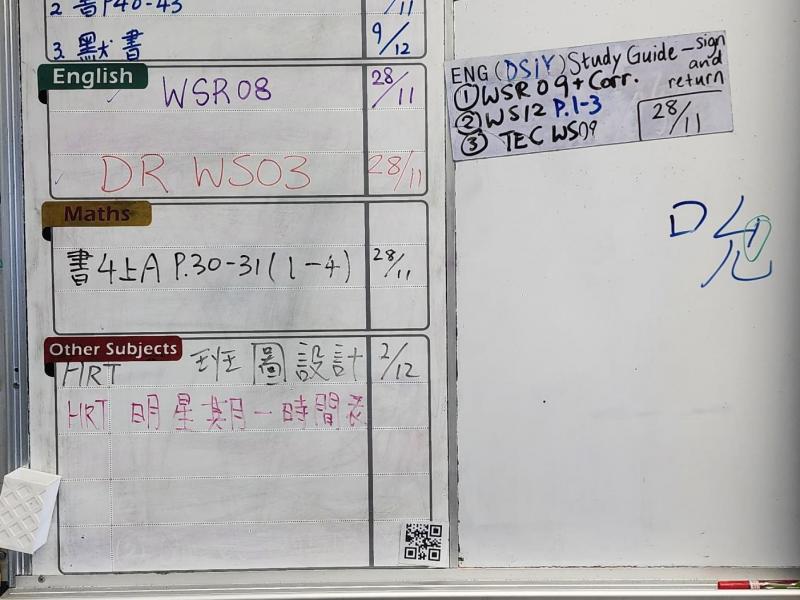 2. 書P40-43
/11
3. 默書 9/12
English
WSR08 28/11
DR WS03 28/11
Maths
書4上A P.30-31(1-4) 28/11
Other Subjects
HRT 班圖設計 2/12
HRT 明星期一時間表
ENG (DSIY) Study Guide – sign and return
① WSR 09 + Corr.
② WS12 P.1-3
③ TEC WS09
28/11